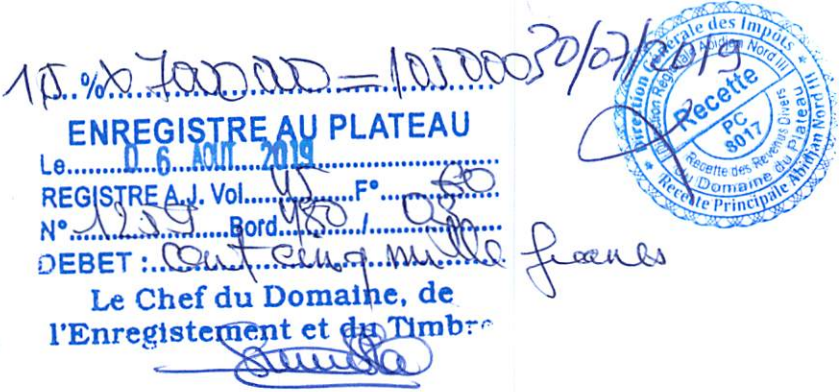 1,5 % x 7000000 = 105000 30/07/2019
ENREGISTRE AU PLATEAU
Le 06 AOUT 2019
REGISTRE A.J. Vol. 45 F° 60
N° 1259 Bord 480 /
DEBET : Cent cinq mille francs
Le Chef du Domaine, de
l'Enregistement et du Timbre
Direction Générale des Impôts
Direction Régionale Abidjan Nord III
Recette
PC
8017
Recette des Revenus Divers
du Domaine du Plateau
Recette Principale Abidjan Nord III